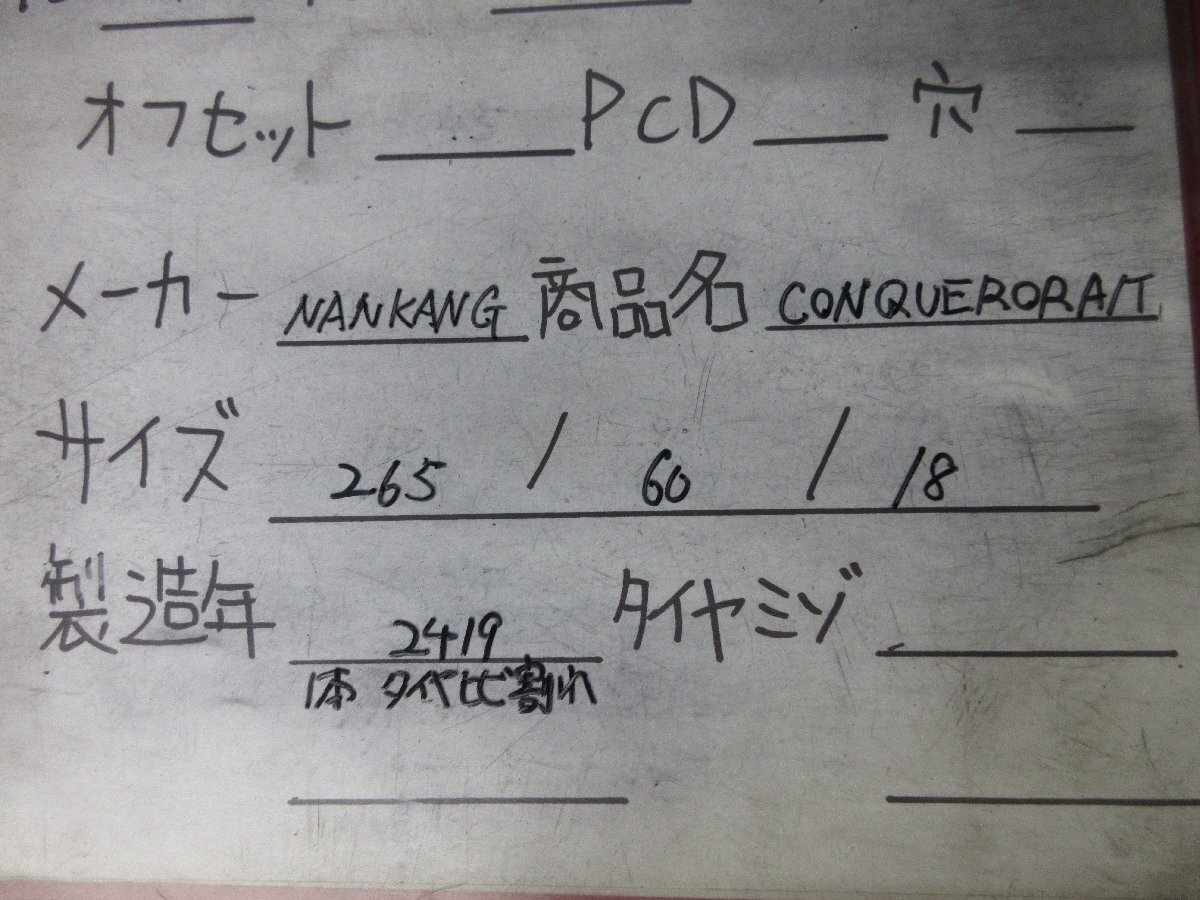 オフセット PCD 穴
メーカー NANKANG 商品名 CONQUERORA/T
サイズ 265 / 60 / 18
製造年 2419 タイヤミゾ
1本 タイヤヒビ割れ